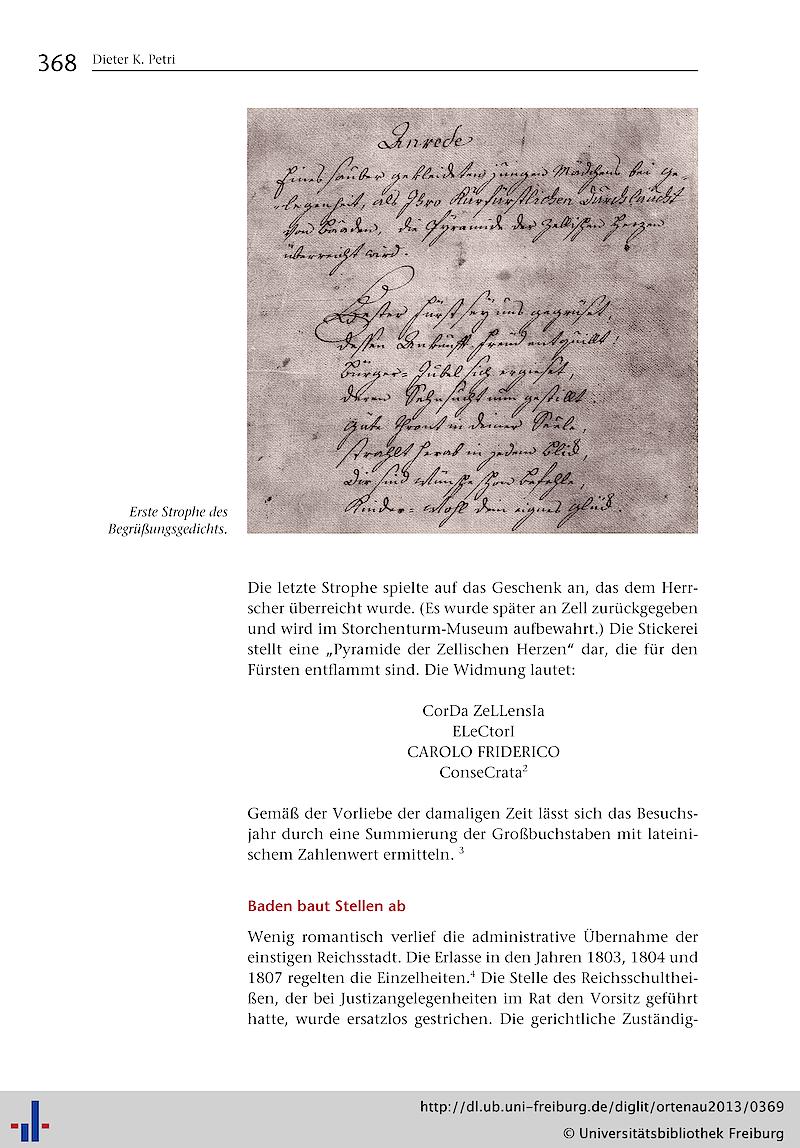 368 Dieter K. Petri
Anrede
Eines sauber gekleideten jungen Mädchens bei Ge-
legenheit, als Ihro Kurfürstlichen Durchlaucht
von Baaden, die Pyramide der Zellischen Herzen
überreicht wird.
Bester Fürst sey uns gegrüßet,
dessen Ankunft Freud entquillt,
Bürger= Jubel sich ergießet,
deren Sehnsucht nun gestillt.
Güte Thront in deiner Seele,
strahlt herab in jedem Blick,
Dir sind Wünsche schon Befehle,
Kinder= Wohl dein eignes Glück.
Erste Strophe des
Begrüßungsgedichts.
Die letzte Strophe spielte auf das Geschenk an, das dem Herr-
scher überreicht wurde. (Es wurde später an Zell zurückgegeben
und wird im Storchenturm-Museum aufbewahrt.) Die Stickerei
stellt eine „Pyramide der Zellischen Herzen“ dar, die für den
Fürsten entflammt sind. Die Widmung lautet:
CorDa ZeLLensIa
ELeCtorI
CAROLO FRIDERICO
ConseCrata²
Gemäß der Vorliebe der damaligen Zeit lässt sich das Besuchs-
jahr durch eine Summierung der Großbuchstaben mit lateini-
schem Zahlenwert ermitteln. ³
Baden baut Stellen ab
Wenig romantisch verlief die administrative Übernahme der
einstigen Reichsstadt. Die Erlasse in den Jahren 1803, 1804 und
1807 regelten die Einzelheiten.⁴ Die Stelle des Reichsschulthei-
ßen, der bei Justizangelegenheiten im Rat den Vorsitz geführt
hatte, wurde ersatzlos gestrichen. Die gerichtliche Zuständig-
http://dl.ub.uni-freiburg.de/diglit/ortenau2013/0369
© Universitätsbibliothek Freiburg